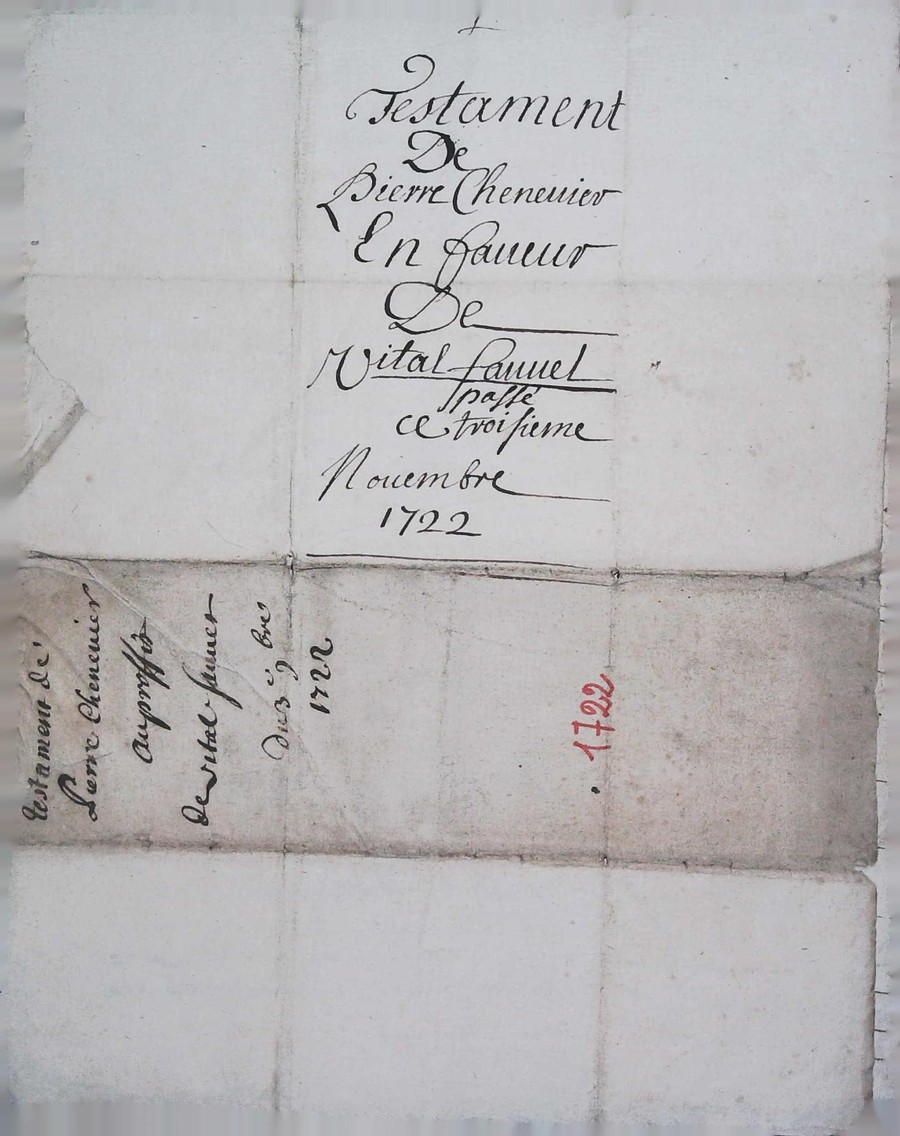 Testament
De
Pierre Chenevier
En faueur
De
Vital fauuel
passé
ce troisieme
Nouembre
1722
testament de
Pierre Chenevier
auproffit
de vital fauuer
du 3e 9bre
1722
1722